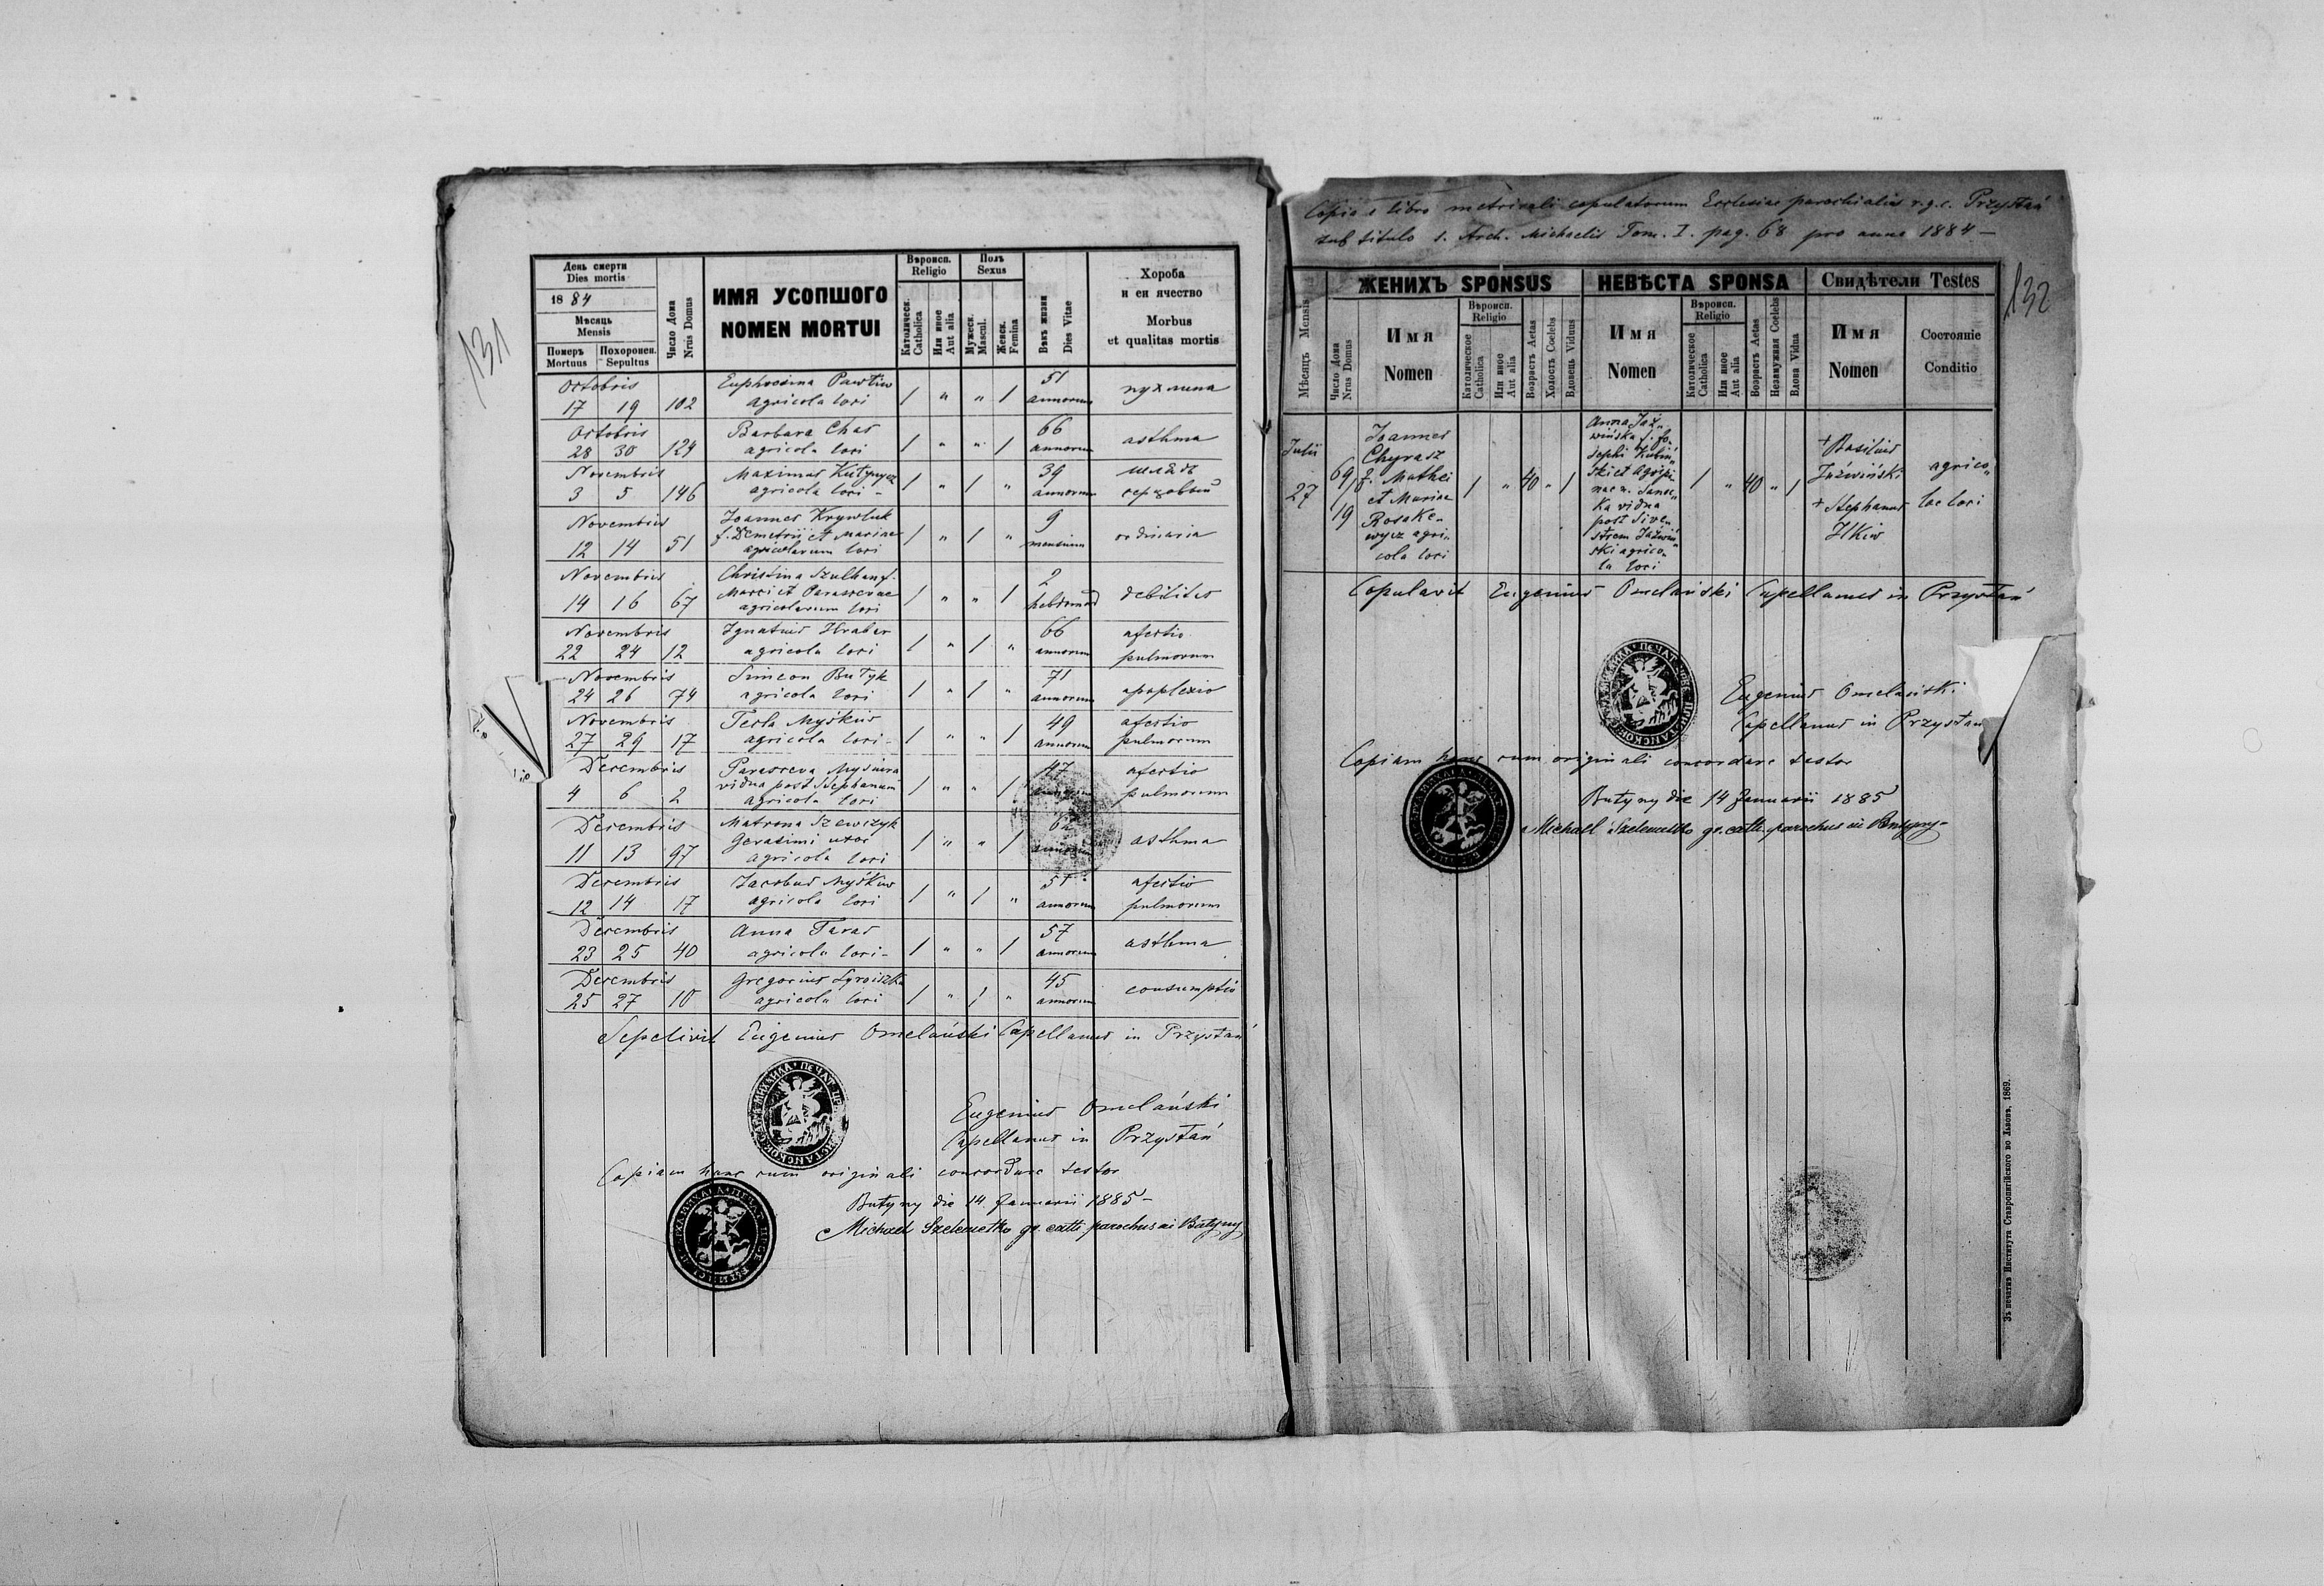 131
День смерти
Dies mortis
1884
Мѣсяць
Mensis
Померъ
Mortuus
Похоронен.
Sepultus
Число Дома
Nrus Domus
ИМЯ УСОПШОГО
NOMEN MORTUI
Вѣроисп.
Religio
Католическ.
Catholica
Или иное
Aut alia
Полъ
Sexus
Мужеск.
Mascul.
Женск.
Femina
Вѣкъ жизни
Dies Vitae
Хороба
и еи ячество
Morbus
et qualitas mortis
Octobris Euphrosina Pawliw 51
17 19 102 agricola loci 1 " " 1 annorum пухлина
Octobris Barbara Chas 66
28 30 124 agricola loci 1 " " 1 annorum asthma
Novembris Maximus Kutynycz 39
3 5 146 agricola loci - 1 " 1 " annorum сердовый
Novembris Joannes Krywluk 9
f. Demetrii et Mariae
12 14 51 agricolarum loci 1 " 1 " mensium ordinaria
Novembris Christina Szulhan f. 2
Marci et Parascevae
14 16 67 agricolarum loci 1 " " 1 hebdomad debilitas
Novembris Ignatius Hrabar 66 afectio
22 24 12 agricola loci 1 " 1 " annorum pulmorum
Novembris Simeon Butyk 71
24 26 74 agricola loci 1 " 1 " annorum apoplexio
Novembris Tecla Myśkiw 49 afectio
27 29 17 agricola loci - 1 " " 1 annorum pulmorum
Decembris Parasceva 47 afectio
vidua post Stephanum
4 6 2 agricola loci 1 " " 1 pulmorum
Decembris Matrona Szewczyk 62
Gerasimi uxor
11 13 97 agricola loci 1 " " 1 annorum asthma
Decembris Jacobus Myśkiw 51 afectio
12 14 17 agricola loci 1 " 1 " annorum pulmorum
Decembris Anna Taras 57
23 25 40 agricola loci - 1 " " 1 annorum asthma
Decembris Gregorius 45
25 27 10 agricola loci 1 " 1 " annorum consumptio
Sepelivit Eugenius Omelański Capellanus in Przystań
Eugenius Omelański
Capellanus in Przystań
Copiam hanc cum originali concordare testor
Butyny die 14. Januarii 1885 -
Michael Szelemetko gr. cath. parochus in Butyny
Copia e libro metricali copulatorum Ecclesiae parochialis r.g.c. Przystań
sub titulo s. Arch. Michaelis Tom. I. pag. 68 pro anno 1884 -
132
Мѣсяць Mensis
ЖЕНИХЪ SPONSUS
Число Дома
Nrus Domus
Имя
Nomen
Вѣроисп.
Religio
Католическое
Catholica
Или иное
Aut alia
Возрастъ Aetas
Холостъ Coelebs
Вдовець Viduus
НЕВѢСТА SPONSA
Имя
Nomen
Вѣроисп.
Religio
Католическое
Catholica
Или иное
Aut alia
Возрастъ Aetas
Незамужная Coelebs
Вдова Vidua
Свидѣтели Testes
Имя
Nomen
Состояніе
Conditio
Julii
27
69
19
Joannes
Chyrasz
f. Mathei
et Mariae
Rosake„
wycz agri„
cola loci
1 " 40 " 1
Anna Jaź„
wińska f. Jo„
sephi Kubiń„
ski et Agripi„
nae n. Sanec„
ka vidua
post Silve„
strem Jaźwiń„
ski agrico„
la loci
1 " 40 " 1
+ Basilius
Jaźwiński
+ Stephanus
Ilkiw
agrico„
lae loci
Copulavit Eugenius Omelański Capellanus in Przystań
Eugenius Omelański
Capellanus in Przystań
Copiam hanc cum originali concordare testor
Butyny die 14 Januarii 1885
Michael Szelemetko gr. cath. parochus in Butyny -
Зъ печатнѣ Института Ставропигійского во Львовѣ. 1869.